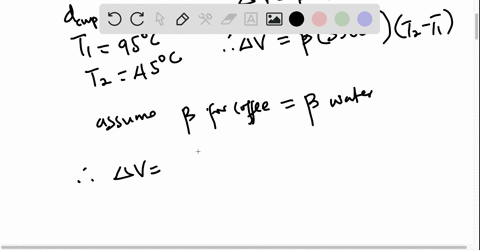 d_cup
T₁ = 95°C
∴ ΔV = β( )(T₂-T₁)
T₂ = 45°C
assume β for coffee = β water
∴ ΔV =